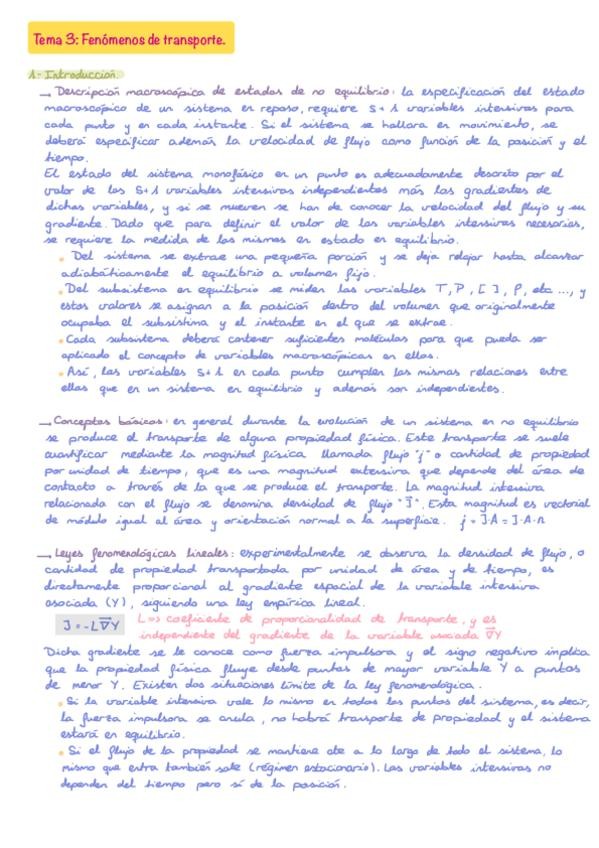 Tema 3: Fenómenos de transporte.
1- Introducción.
→ Descripción macroscópica de estados de no equilibrio: la especificación del estado
macroscópico de un sistema en reposo, requiere S+1 variables intensivas para
cada punto y en cada instante. Si el sistema se hallara en movimiento, se
deberá especificar además la velocidad de flujo como función de la posición y el
tiempo.
El estado del sistema monofásico en un punto es adecuadamente descrito por el
valor de las S+1 variables intensivas independientes más los gradientes de
dichas variables, y si se mueven se han de conocer la velocidad del flujo y su
gradiente. Dado que para definir el valor de las variables intensivas necesarias,
se requiere la medida de las mismas en estado en equilibrio.
• Del sistema se extrae una pequeña porción y se deja relajar hasta alcanzar
adiabáticamente el equilibrio a volumen fijo.
• Del subsistema en equilibrio se miden las variables T, P, [ ], ρ, etc ..., y
estos valores se asignan a la posición dentro del volumen que originalmente
ocupaba el subsistema y el instante en el que se extrae.
• Cada subsistema deberá contener suficientes moléculas para que pueda ser
aplicado el concepto de variables macroscópicas en ellas.
• Así, las variables S+1 en cada punto cumplen las mismas relaciones entre
ellas que en un sistema en equilibrio y además son independientes.
→ Conceptos básicos: en general durante la evolución de un sistema en no equilibrio
se produce el transporte de alguna propiedad física. Este transporte se suele
cuantificar mediante la magnitud física llamada flujo "j" o cantidad de propiedad
por unidad de tiempo, que es una magnitud extensiva que depende del área de
contacto a través de la que se produce el transporte. La magnitud intensiva
relacionada con el flujo se denomina densidad de flujo "J". Esta magnitud es vectorial
de módulo igual al área y orientación normal a la superficie. j = J·A = J·A·n
→ Leyes fenomenológicas lineales: experimentalmente se observa la densidad de flujo, o
cantidad de propiedad transportada por unidad de área y de tiempo, es
directamente proporcional al gradiente espacial de la variable intensiva
asociada (Y), siguiendo una ley empírica lineal.
J = -L∇Y L => coeficiente de proporcionalidad de transporte, y es
independiente del gradiente de la variable asociada ∇Y
Dicha gradiente se le conoce como fuerza impulsora y el signo negativo implica
que la propiedad física fluye desde puntos de mayor variable Y a puntos
de menor Y. Existen dos situaciones límite de la ley fenomenológica.
• Si la variable intensiva vale lo mismo en todos los puntos del sistema, es decir,
la fuerza impulsora se anula, no habrá transporte de propiedad y el sistema
estará en equilibrio.
• Si el flujo de la propiedad se mantiene cte a lo largo de todo el sistema, lo
mismo que entra también sale (régimen estacionario). Las variables intensivas no
dependen del tiempo pero sí de la posición.